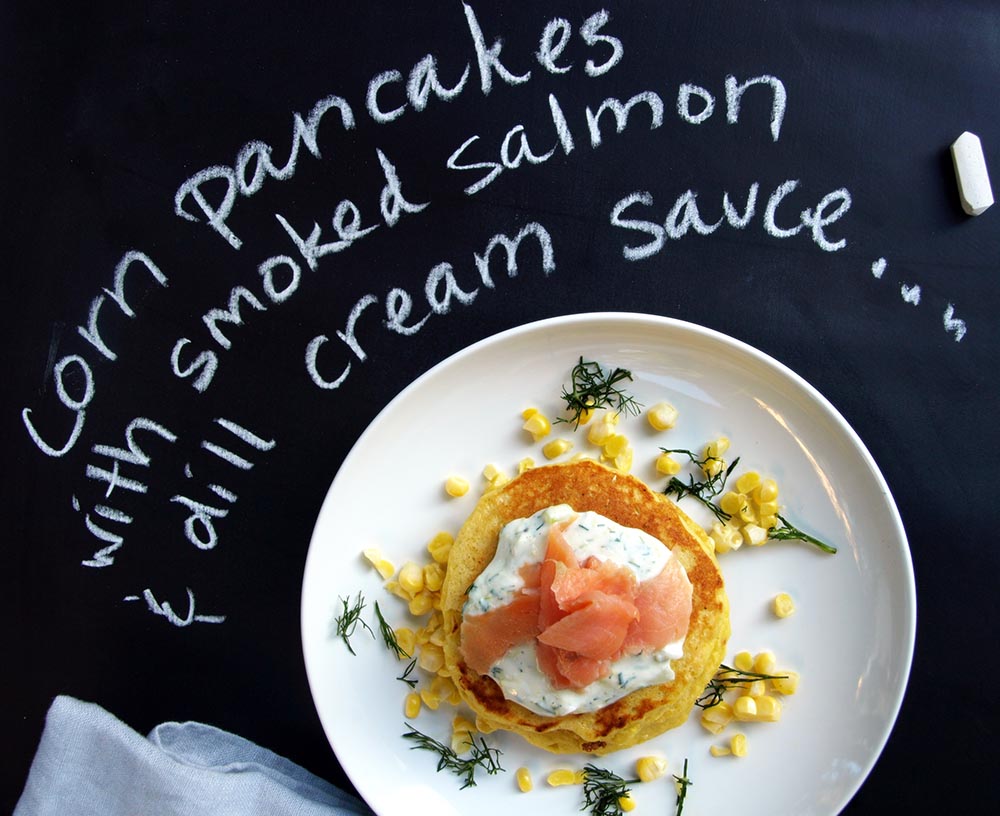 Corn pancakes
with smoked salmon
& dill cream sauce...